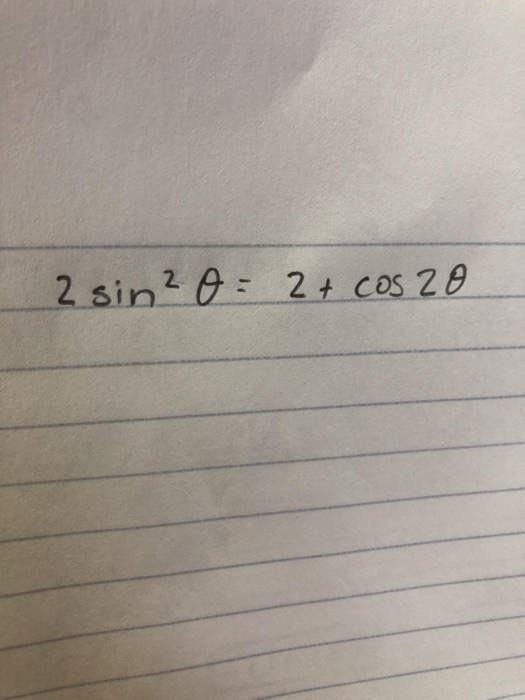 2 sin² θ = 2 + cos 2θ